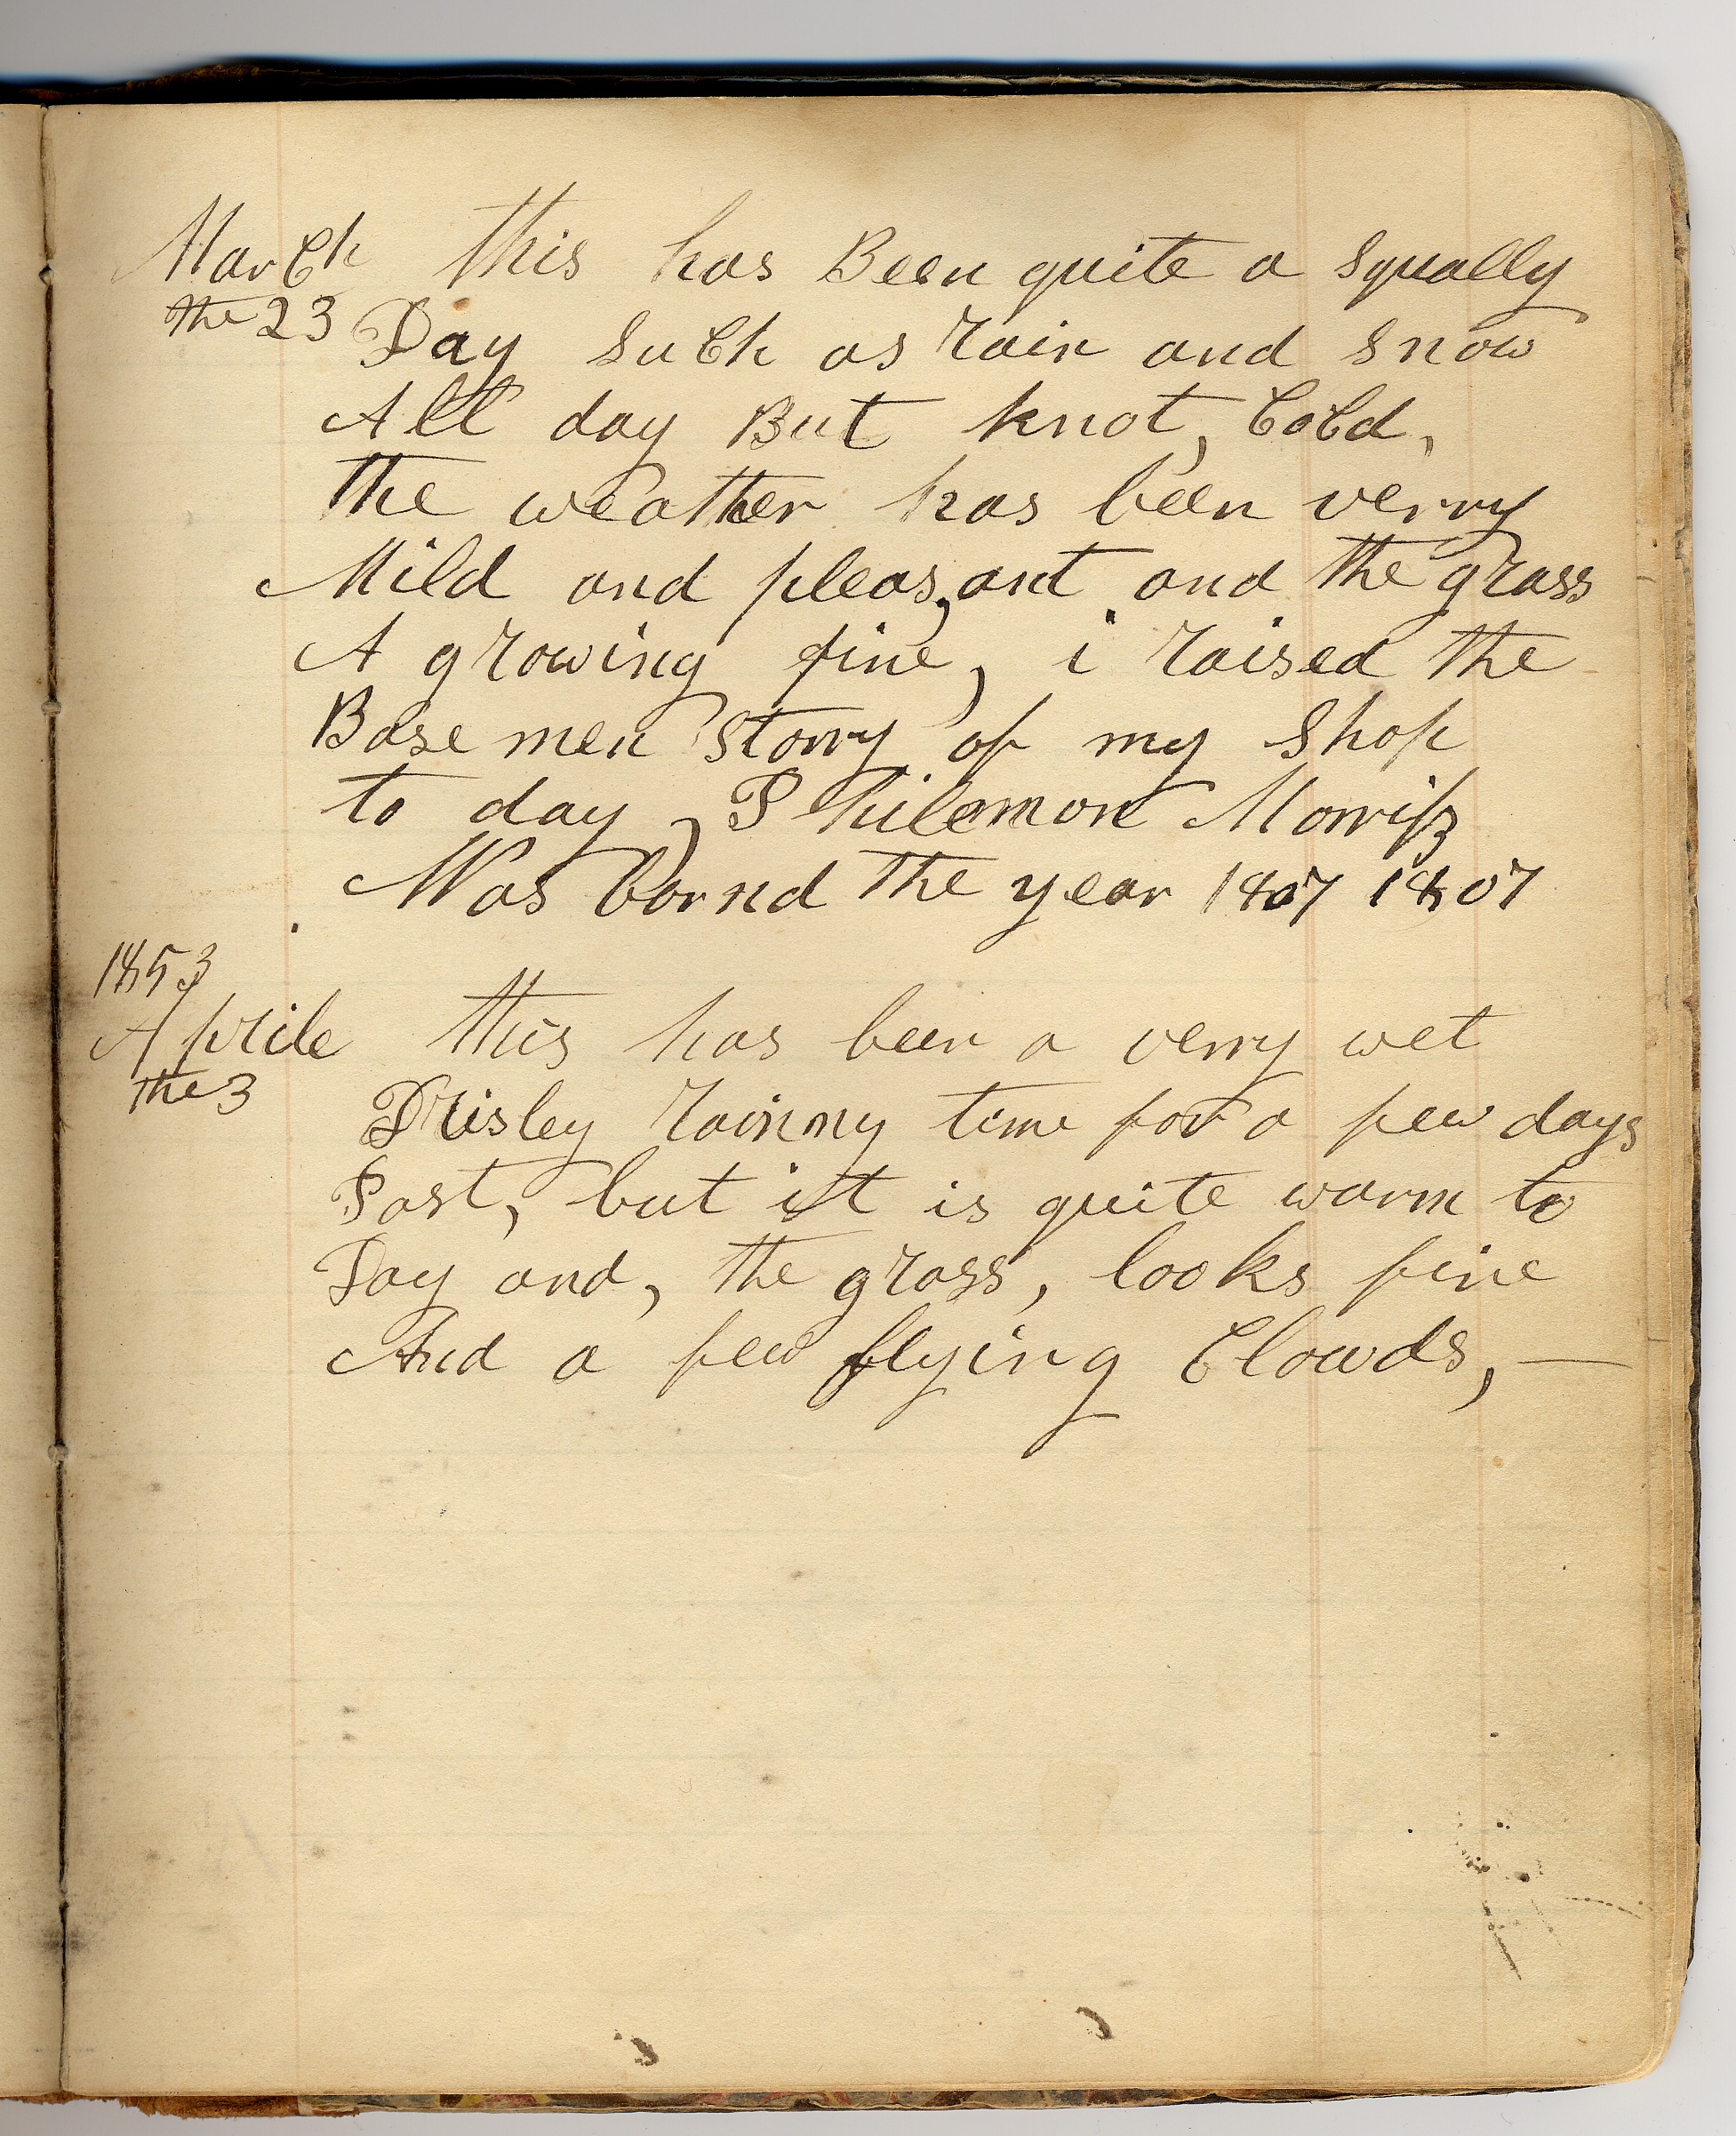 March this has Been quite a squally
the 23 Day such as rain and snow
All day But knot, Cold,
the weather has been verry
Mild and pleasant and the grass
A growing fine, i raised the
Basemen storry of my shop
to day, Philemon Morriss
Was bornd the year 1807 1807
1853
Aprile this has been a verry wet
the 3 Drisley rainny time for a few days
Past, but it is quite warm to
Day and, the grass, looks fine
And a few flying Clowds, —